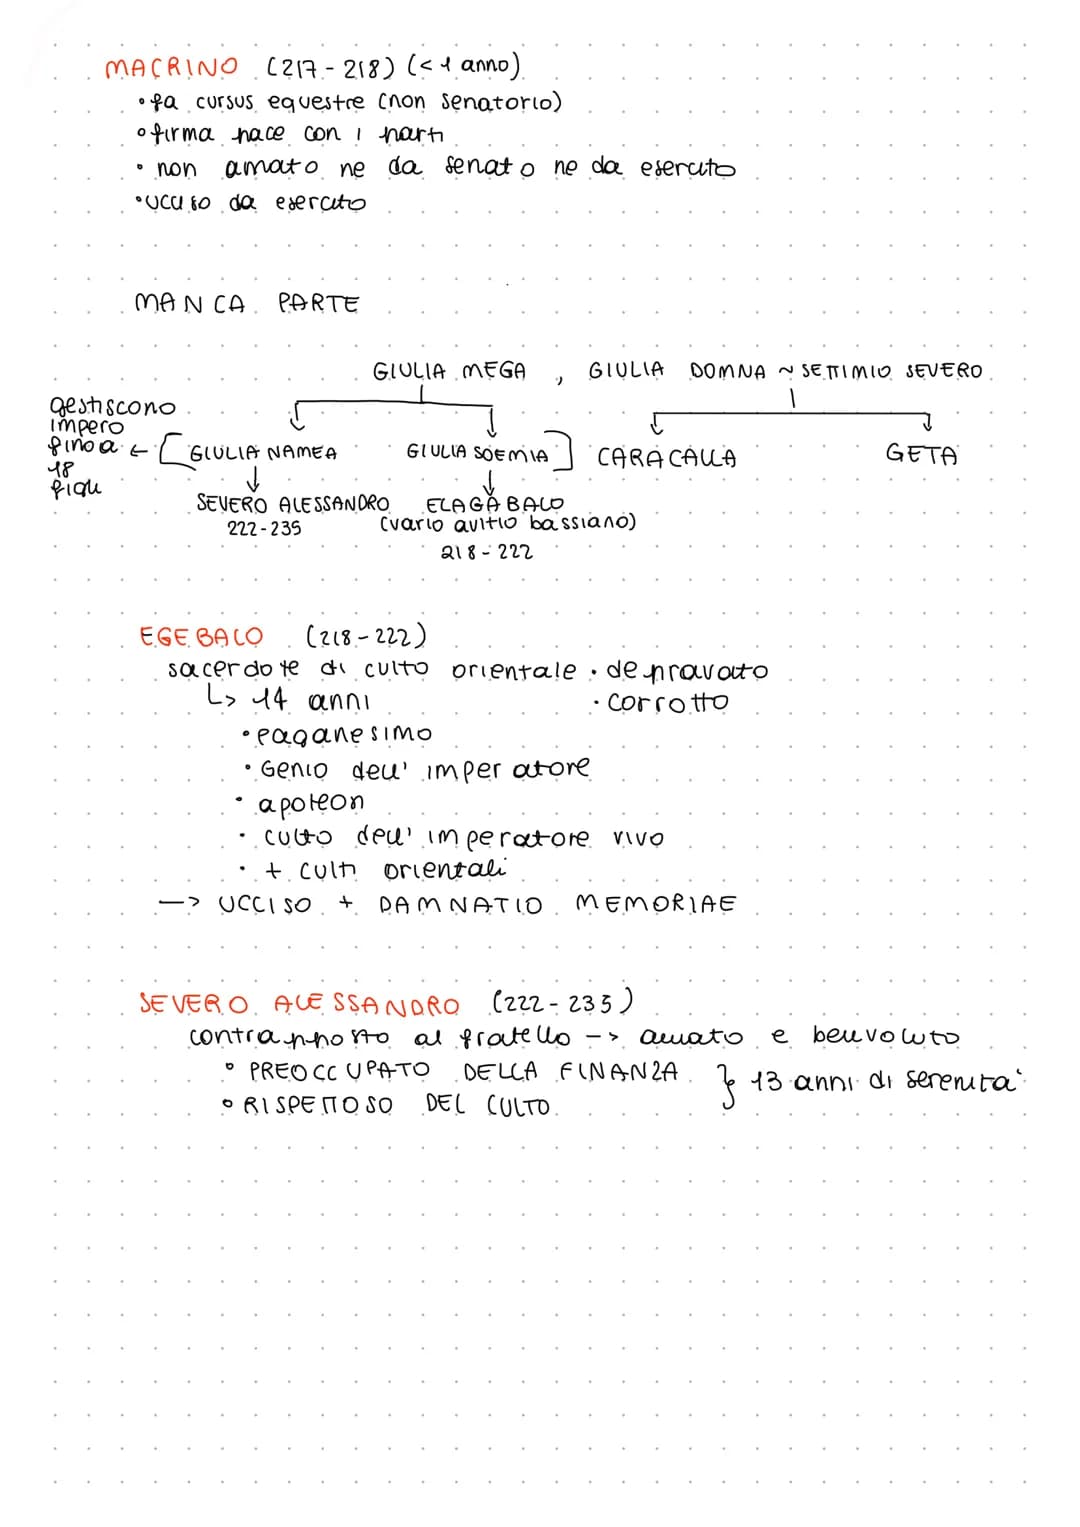 MACRINO (217-218) (<1 anno)
• fa cursus equestre (non senatorio)
• firma pace con i parti
• non amato ne da senato ne da esercito
• ucciso da esercito
MANCA PARTE
GIULIA MEGA , GIULIA DOMNA ~ SETTIMIO SEVERO
gestiscono
impero
fino a ← [ GIULIA NAMEA GIULIA SOEMIA ] CARACALLA GETA
18
figli
SEVERO ALESSANDRO ELAGABALO
222-235 (vario avitio bassiano)
218-222
EGEBALO (218-222)
sacerdote di culto orientale • depravato
↳ 14 anni • corrotto
• paganesimo
• Genio dell' imperatore
• apoteon
• culto dell' imperatore vivo
• + culti orientali
-> UCCISO + DAMNATIO MEMORIAE
SEVERO ALESSANDRO (222-235)
contrapposto al fratello -> amato e benvoluto
• PREOCCUPATO DELLA FINANZA } 13 anni di serenità
• RISPETTOSO DEL CULTO